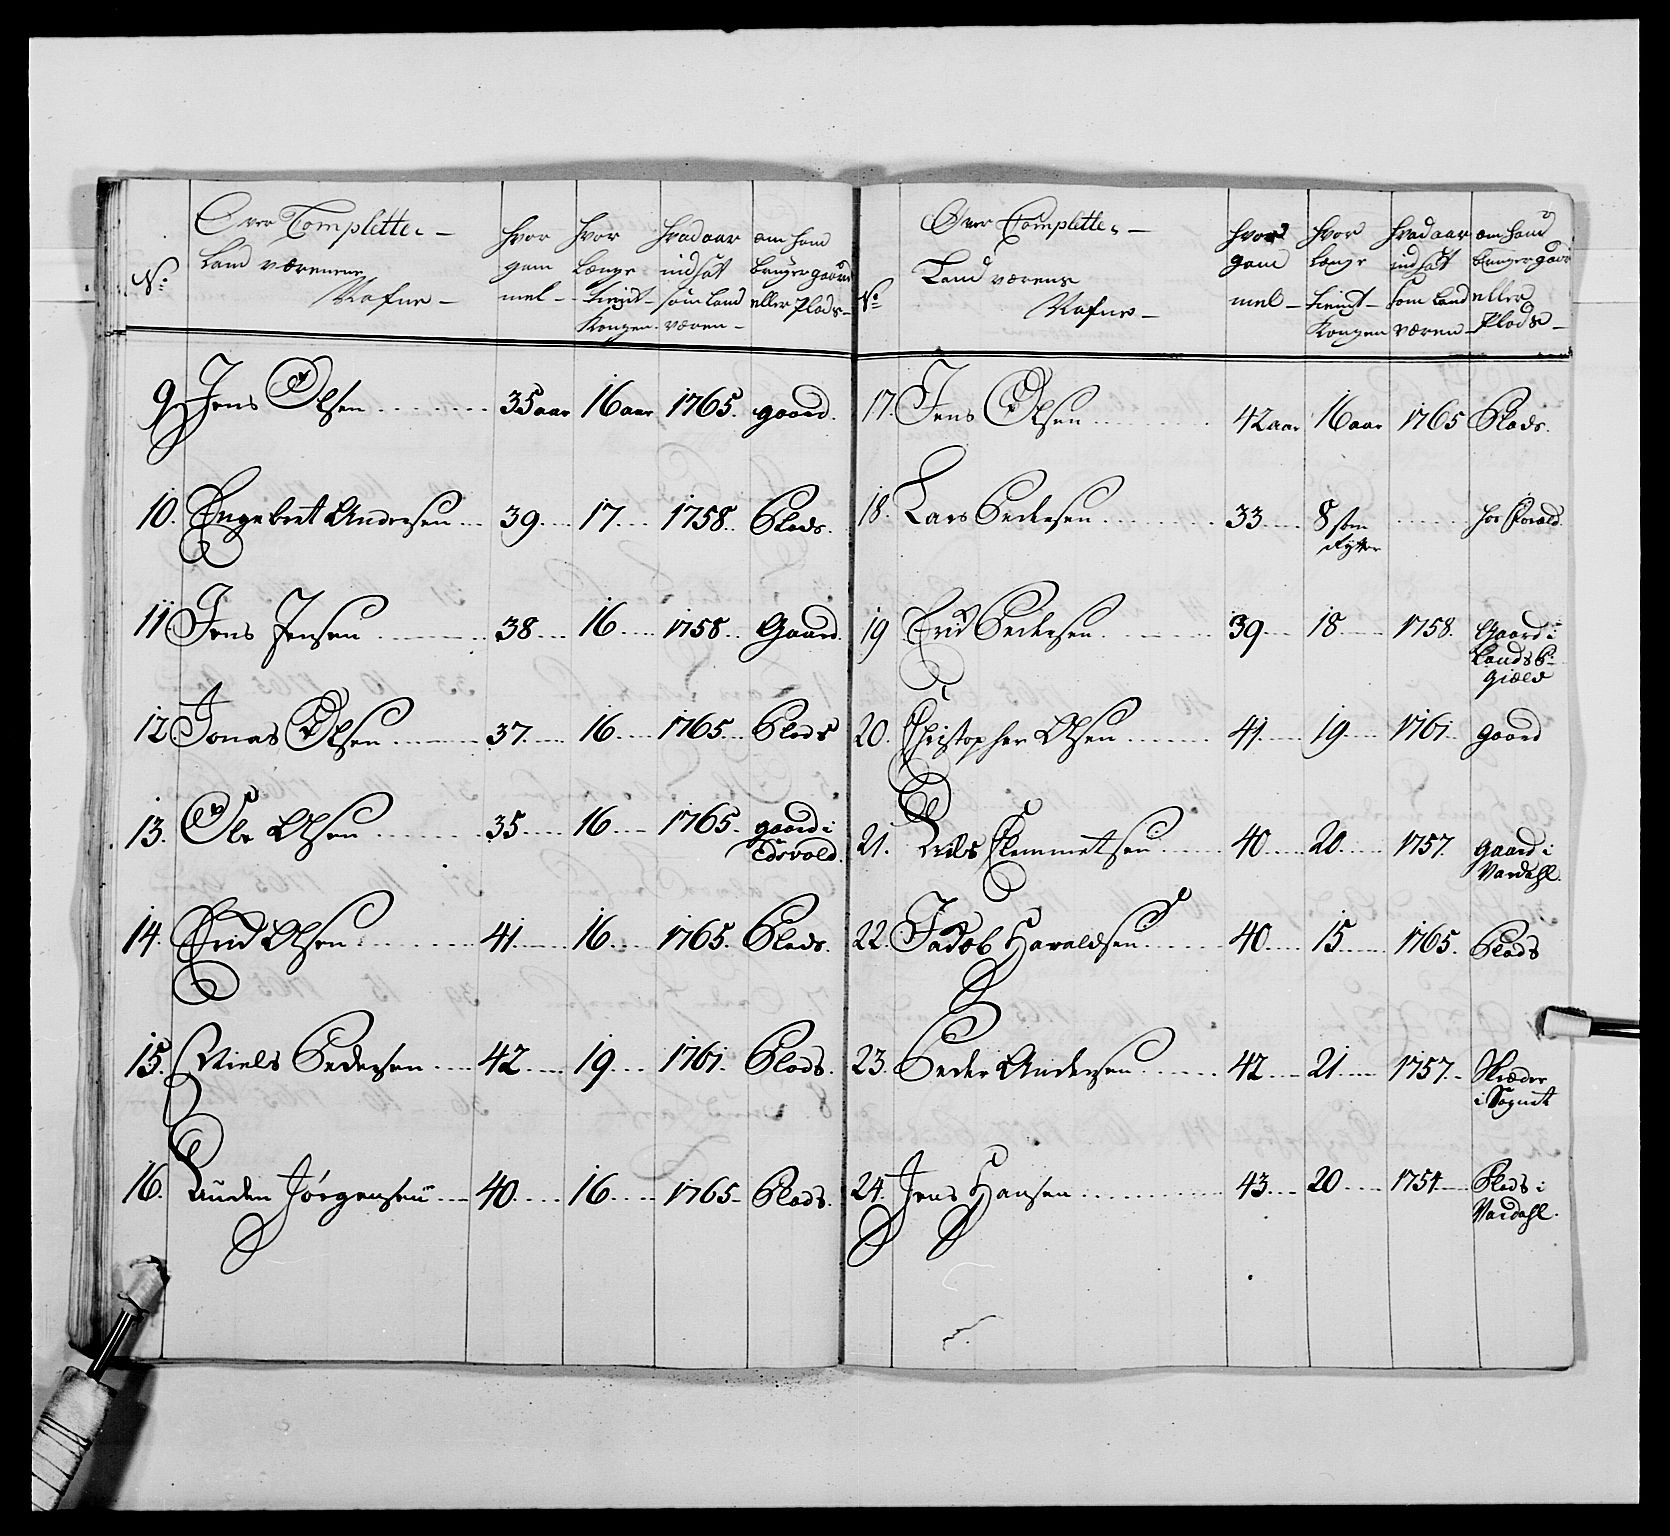 No.
Over Complette
Land værernes
Nafne
hvor
gam
mel
hvor
Længe
tient
Kongen
hvad aar
indsat
som Land
væren
om hand
bruger gaard
eller Plads
9. Jens Olsen 35 aar 16 aar 1765. gaard.
10. Engebret Andersen 39 17 1758. Plads.
11. Jens Jensen 38 16 1758. Gaard.
12 Jonas Olsen 37. 16 1765. Plads
13. Ole Olsen 35 16 1765. gaard i
Edsvold.
14. Erich Olsen 41. 16 1765. Plads.
15. Niels Pedersen 42 19 1761. Plads.
16. Auden Jörgensen 40. 16 1765 Plads.
No.
Over Complette
Land værens
Nafne
hvor
gam
mel
hvor
længe
tient
Kongen
hvad aar
indsat
som Land
væren
om hand
bruger gaard
eller
Plads
17. Jens Olsen 42 aar 16 aar 1765 Plads.
18. Lars Pedersen 33 8 som
Rytter
19 Erich Pedersen. 39 18 1758. Gaard i
Lands P:
giæld
20. Christopher Olsen 41 19 1761 gaard
21. Niels Clemmetsen 40 20 1757. gaard i
Vardahl.
22. Jacob Haraldsen 40 15 1765. Plads
23. Peder Andersen 42 21 1757. Skræder
i Sognet
24. Jens Hansen 43 20 1754. Plads i
Vardahl.